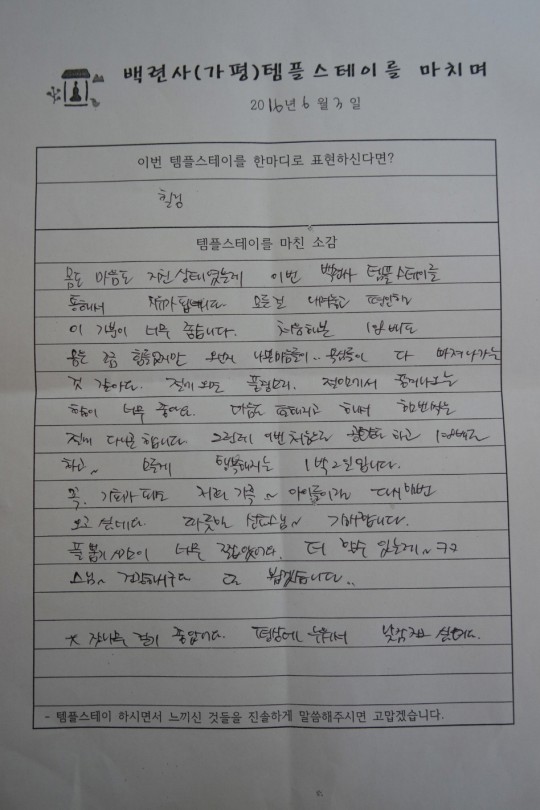 백련사(가평)템플스테이를 마치며
2016년 6월 3일
이번 템플스테이를 한마디로 표현하신다면?
힐링
템플스테이를 마친 소감
몸도 마음도 지친상태였는데 이번 백련사 템플스테이를
통해서 치유가 됩니다 모든걸 내려놓고 편안한
이 기분이 너무 좋습니다. 처음해본 108배도
몸은 조금 힘들었지만 나쁜마음들이.. 다 빠져나가는
것 같아요. 절에 오면 풀벌레소리. 자연에서 품겨나오는
향이 너무 좋아요. 마음도
절에 다니곤 합니다 그런데 이번 처음으로 하고 108배도
하고~ 모르게 행복해지는 1박2일입니다.
꼭. 기회가 되면 저희 가족~ 아이들이랑 다시한번
오고 싶네요. 스님~ 기억합니다.
풀뽑기 시간이 너무 작았었어요. 더 할수 있는데~ ㅋㅋ
스님~ 건강하시구요 또 뵙겠습니다..
* 좋았어요. 평상에 누워서 낮잠자고 싶네요.
- 템플스테이 하시면서 느끼신 것들을 진솔하게 말씀해주시면 고맙겠습니다.